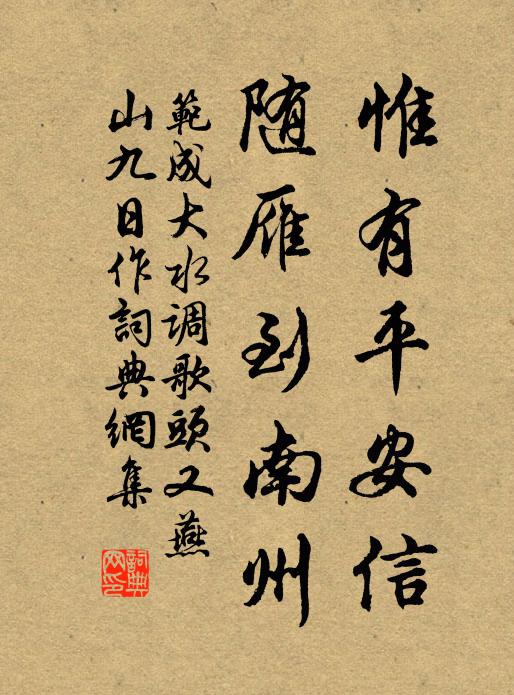 惟有平安信
随雁到南州
範成大水调歌頭又燕
山九日作詞典網集
詞典
网印